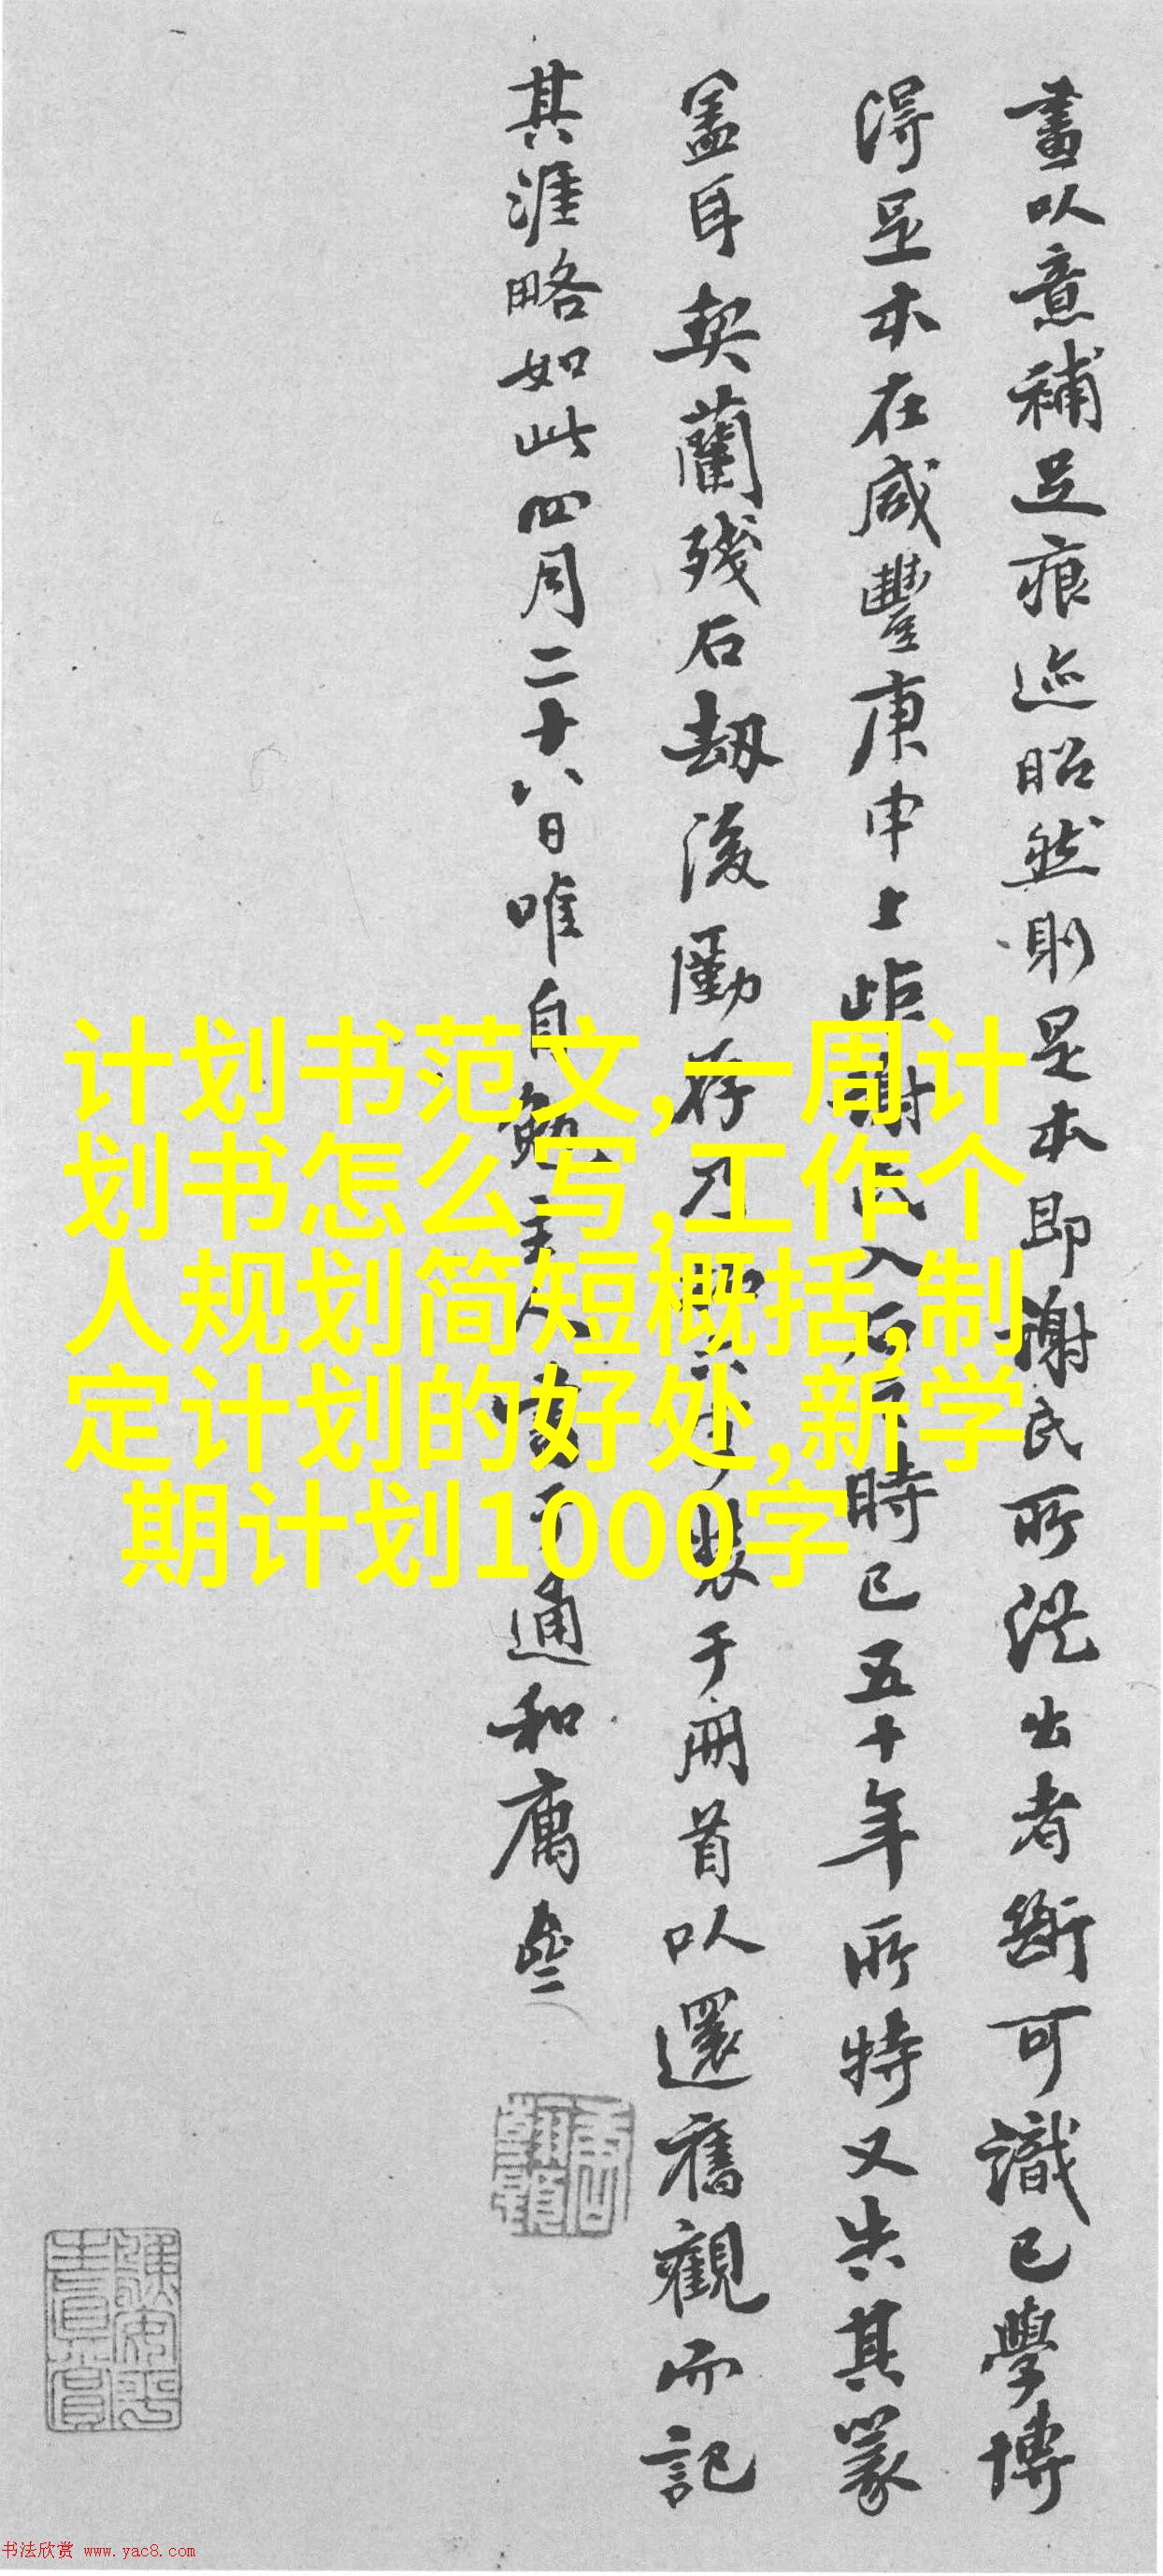 畫以意補足痕迹昭然則是本即謝氏所從出者斷可識已學博
得足本在咸豐庚申上距謝氏入石時已五十年所特又失其篆
蓋耳契蘭殘石劫後勵存乃 裝于冊首以還舊觀而記
其涯略如此四月二十八日唯自勉主人 于通和
计划书范文,一周计
划书怎么写,工作个
人规划简短概括,制
定计划的好处,新学
期计划1000字
书法欣赏 www.yac8.com